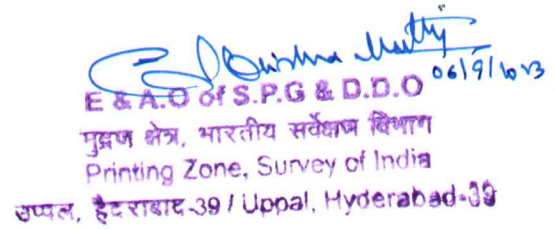 Krishna Murthy
06/9/2023
E & A.O of S.P.G & D.D.O
मुद्रण क्षेत्र, भारतीय सर्वेक्षण विभाग
Printing Zone, Survey of India
उप्पल, हैदराबाद-39 / Uppal, Hyderabad-39